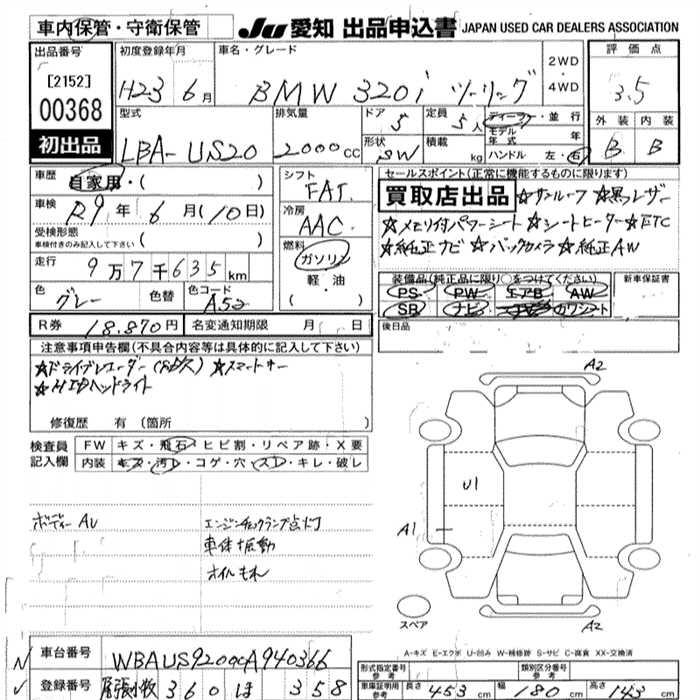 車内保管・守衛保管
JU 愛知 出品申込書 JAPAN USED CAR DEALERS ASSOCIATION
出品番号 初度登録年月 車名・グレード 2WD・4WD 評価点
[2152] H23 6月 BMW 320i ツーリング 3.5
00368
初出品
型式 排気量 ドア 5 定員 5人 ディーラー・並行 外装 内装
モデル年式 年
LBA-US20 2000cc 形状 SW 積載 kg ハンドル 左・右 B B
車歴 自家用・( ) シフト FAT
セールスポイント(正常に機能するものに限ります)
買取店出品 ☆サンルーフ ☆黒レザー
車検 R9年6月(10日) 冷房 AAC
☆メモリ付パワーシート ☆シートヒーター ☆ETC
受検形態
車検付きのみ記入して下さい ( ) 燃料 ガソリン
☆純正ナビ ☆バックカメラ ☆純正AW
走行 9万7千635km 軽油
装備品(純正品に限り○をつけてください) 新車保証書
色 グレー 色替 色コード A52
PS・PW・エアB・AW
SB・ナビ・カワシート
R券 18.870円 名変通知期限 月 日
後日品
注意事項申告欄(不具合内容等は具体的に記入して下さい)
☆ドライブレコーダー
☆スマートキー
☆HIDヘッドライト
修復歴 有(箇所 )
検査員 FW キズ・飛石・ヒビ割・リペア跡・X要
記入欄 内装 キズ・汚レ・コゲ・穴・スレ・キレ・破レ
A2
U1
ボディーAU エンジンチェックランプ点灯
A1
車体振動
オイルもれ
スペア
A2
A-キズ E-エクボ U-凹み W-補修跡 S-サビ C-腐食 XX-交換済
車台番号 WBAUS92000A940366
型式指定番号 参考 類別区分番号 参考
登録番号 尾張小牧 360 ほ 358
車庫証明用 参考 長さ 453cm 幅 180cm 高さ 143cm